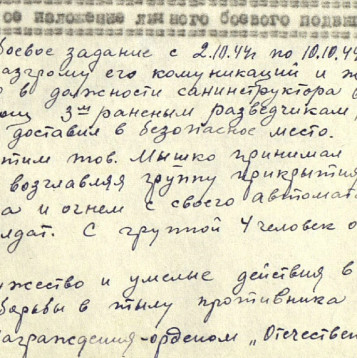 ое изложение личного боевого подви
боевое задание с 2.10.44г по 10.10.44
разгрому его комуникаций и ж
в должности санинструктора
3ᵐ раненым разведчикам,
доставил в безопасное место.
этим тов. Мышко принимал
возглавляя группу прикрытия
а и огнем с своего автомат
лдат. С группой 4 человек о
ужество и умелые действия в
борьбы в тылу противника
награждения-орденом „Отечествен